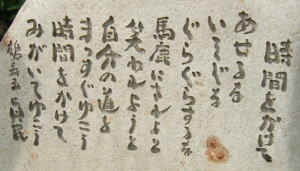 時間をかけて
あせるな
いそぐな
ぐらぐらするな
馬鹿にされようと
笑われようと
自分の道を
まっすぐゆこう
時間をかけて
みがいてゆこう
坂村真民